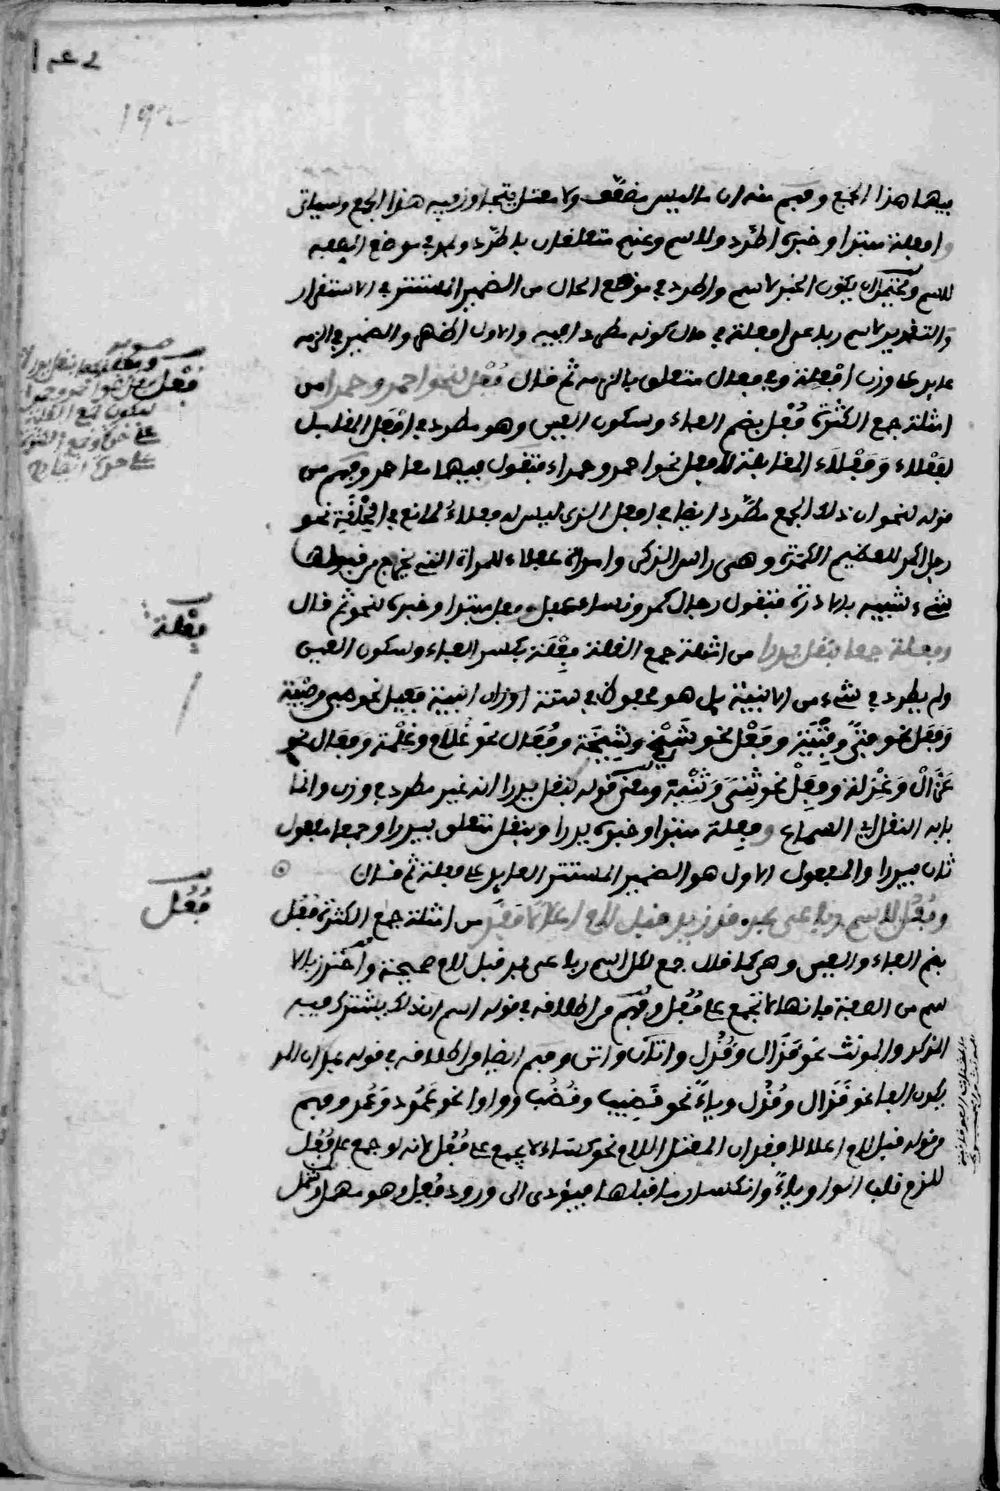 فيها هذا الجمع وفهم منه ان ما ليس مضعّف ولا معتل يتجاوز فيه هذا الجمع وسياتى
وافعلة مبتدا وخبره اطّرد وللاسم وعنهم متعلقان باطّرد وهو في موضع الصفة
للاسم ويحتمل ان يكون الخبر لاسم واطرد في موضع الحال من الضمير المستتر في الاستقرار
والتقدير لاسم رباعي افعلة في حال كونه مطردا فيه والاول اظهر والضمير في الزمه
عايد على وزن افعلة وفي فعال متعلق بالزمه ثم قال فُعْل لنحو احمر وحمرا من
امثلة جمع الكثرة فُعْل بضم الفاء وسكون العين وهو مطرد في افعل المقابل
لفعلاء وفعلاء المقابلة لافعل نحو احمر وحمراء فتقول فيهما معا حمر وفهم من
قوله لنحو ان ذلك الجمع مطّرد ايضا في افعل الذي ليس له فعلاء لمانع في الخِلْقَة نحو
رجل اكمر للعظيم الكمرة وهي راس الذكر وامراة عفلاء للمراة التي يخرج من قبلها
شيء شبيه بالادرة فتقول رجال كمر ونساء عفل وفعل مبتدا وخبره لنحو ثم قال
وفعلة جمعا بنقل يدرا من امثلة جمع القلة فِعْلَة بكسر الفاء وسكون العين
ولم يطرد في شيء من الابنية بل هو محفوظ في ستة اوزان ابنية فعيل نحو صبي وصبية
وفَعَل نحو فتًى وفِتْيَة وفَعْل نحو شَيْخ وشِيخَة وفُعَال نحو غُلَام وغِلْمة وفَعَال نحو
غَزَالْ وغِزلة وفِعَلْ نحو ثِنًى وثِنْية ومعنى قوله بنقل يدرا انه غير مطرد في وزن وانما
بابه النقل اي السماع وفعلة مبتدا وخبره يدرا وبنقل متعلق بيدرا وجمعا مفعول
ثان بيدرا والمفعول الاول هو الضمير المستتر العايد على فعلة ثم قال
وفُعُل لاسم رباعي بمد قد زيد قبل لام اعلالا فقد من امثلة جمع الكثرة فُعُل
بضم الفاء والعين وهو كما قال جمع لكل اسم رباعي بمد قبل لام صحيحة واحترز بالا
سم من الصفة فانها لا تجمع على فُعُل وفُهم من اطلاقه في قوله اسم ان ذلك يشترك فيه
المذكر والمونث نحو قَذَال وقُذُل واتان واتن وفهم ايضا من اطلاقه في قوله بمد ان المد
يكون الفا نحو قَذَال وقُذُل وياءً نحو قضيب وقُضُب وواوا نحو عَمُود وعُمُد وفهم
من قوله قبل لام اعلالا فقد ان المعتل اللام نحو كساء لا يجمع على فُعُل لانه لو جمع على فُعُل
للزم قلب الواو ياءً وانكسار ما قبلها فيؤدى الى ورود فُعِل وهو مهمل
فُعْل
فِعْلَة
فُعُل